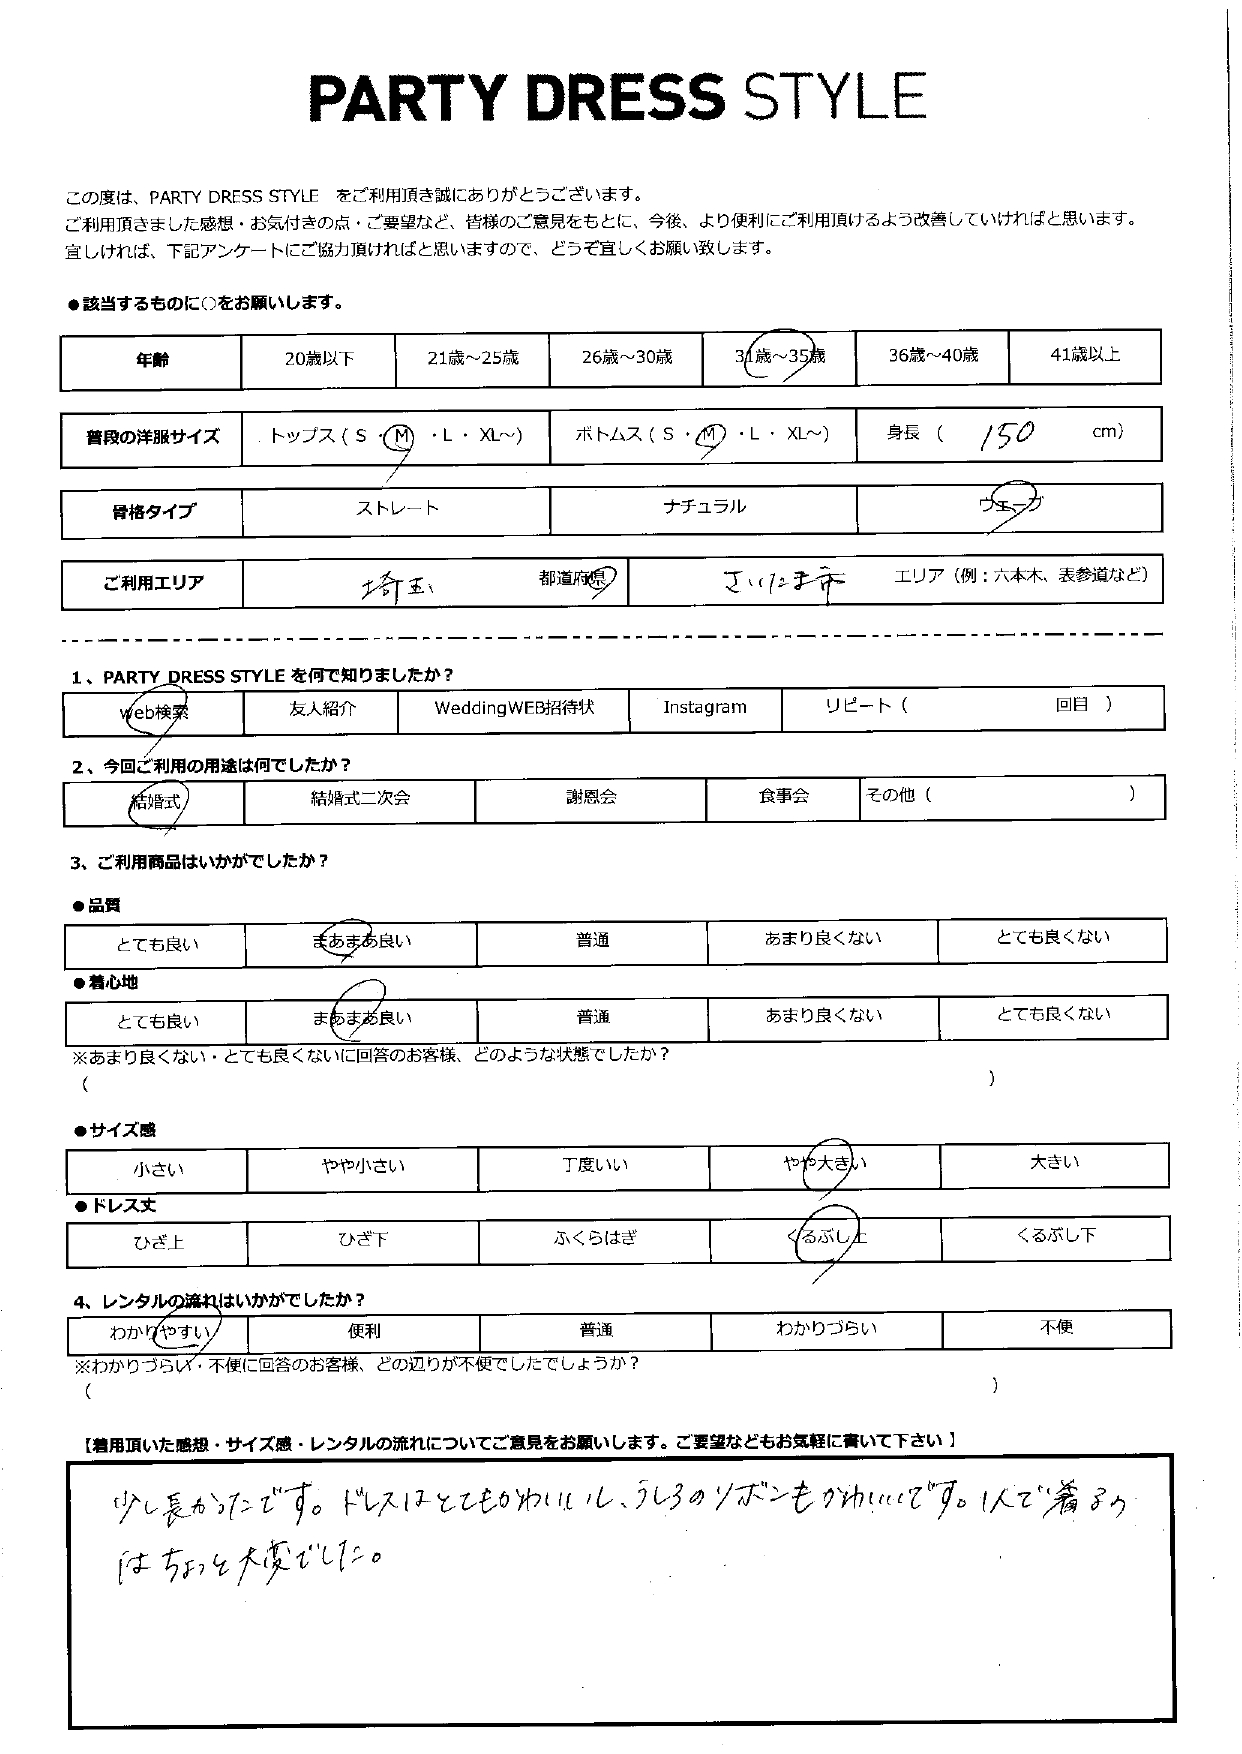 PARTY DRESS STYLE
この度は、PARTY DRESS STYLE をご利用頂き誠にありがとうございます。
ご利用頂きました感想・お気付きの点・ご要望など、皆様のご意見をもとに、今後、より便利にご利用頂けるよう改善していければと思います。
宜しければ、下記アンケートにご協力頂ければと思いますので、どうぞ宜しくお願い致します。
●該当するものに○をお願いします。
年齢 20歳以下 21歳～25歳 26歳～30歳 31歳～35歳 36歳～40歳 41歳以上
普段の洋服サイズ トップス ( S ・ M ・ L ・ XL～) ボトムス ( S ・ M ・ L ・ XL～) 身長 ( 150 cm)
骨格タイプ ストレート ナチュラル ウェーブ
ご利用エリア 埼玉 都道府県 さいたま市 エリア（例：六本木、表参道など）
1、PARTY DRESS STYLE を何で知りましたか？
web検索 友人紹介 WeddingWEB招待状 Instagram リピート ( 回目 )
2、今回ご利用の用途は何でしたか？
結婚式 結婚式二次会 謝恩会 食事会 その他 ( )
3、ご利用商品はいかがでしたか？
●品質
とても良い まあまあ良い 普通 あまり良くない とても良くない
●着心地
とても良い まあまあ良い 普通 あまり良くない とても良くない
※あまり良くない・とても良くないに回答のお客様、どのような状態でしたか？
( )
●サイズ感
小さい やや小さい 丁度いい やや大きい 大きい
●ドレス丈
ひざ上 ひざ下 ふくらはぎ くるぶし上 くるぶし下
4、レンタルの流れはいかがでしたか？
わかりやすい 便利 普通 わかりづらい 不便
※わかりづらい・不便に回答のお客様、どの辺りが不便でしたでしょうか？
( )
【着用頂いた感想・サイズ感・レンタルの流れについてご意見をお願いします。ご要望などもお気軽に書いて下さい】
少し長かったです。ドレスはとてもかわいいし、うしろのリボンもかわいいです。1人で着るの
はちょっと大変でした。